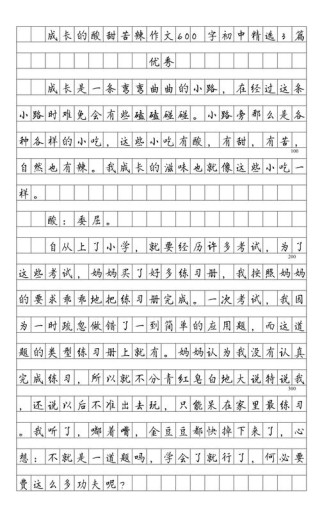 成长的酸甜苦辣作文600 字初中精选3 篇
优秀
成长是一条弯弯曲曲的小路，在经过这条
小路时难免会有些磕磕碰碰。小路旁那么是各
种各样的小吃，这些小吃有酸，有甜，有苦，
100
自然也有辣。我成长的滋味也就像这些小吃一
样。
酸：委屈。
自从上了小学，就要经历许多考试，为了
200
这些考试，妈妈买了好多练习册，我按照妈妈
的要求乖乖地把练习册完成。一次考试，我因
为一时疏忽做错了一到简单的应用题，而这道
题的类型练习册上就有。妈妈认为我没有认真
完成练习，所以就不分青红皂白地大说特说我
300
，还说以后不准出去玩，只能呆在家里最练习
。我听了，嘟着嘴，金豆豆都快掉下来了，心
想：不就是一道题吗，学会了就行了，何必要
费这么多功夫呢？